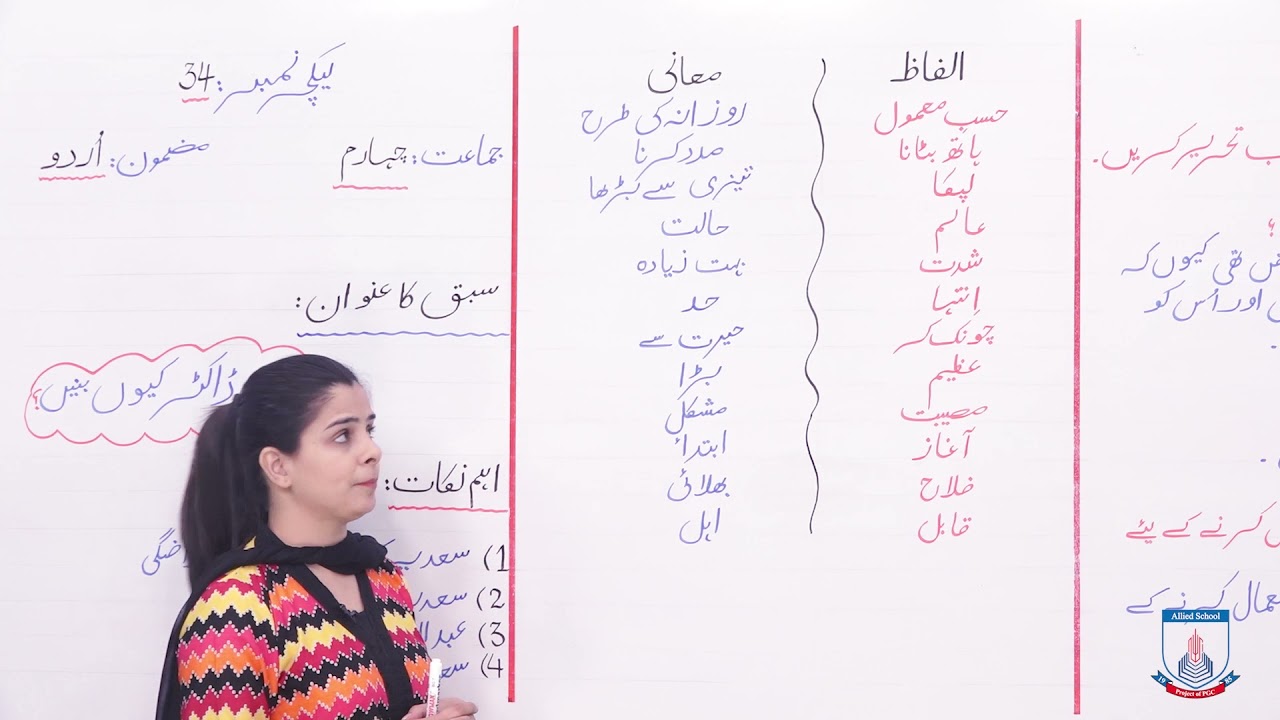 ب تحریر کریں۔
؟
ض تھی کیوں کہ
ی اور اُس کو
۔
۔
کرنے کے لیے
کے
الفاظ معانی
حسب معمول روزانہ کی طرح
ہاتھ بٹانا مدد کرنا
لپکا تیزی سے بڑھا
عالم حالت
شدت بہت زیادہ
اِنتہا حد
چونک کر حیرت سے
عظیم بڑا
مصیبت مشکل
آغاز ابتداء
فلاح بھلائی
قابل اہل
لیکچر نمبر: 34
جماعت: چہارم مضمون: اُردو
سبق کا عنوان:
ڈاکٹر کیوں بنیں؟
اہم نکات:
(1 سعدیہ
(2 سعد
(3 عبدال
(4 سع
Allied School
1985
Project of PGC